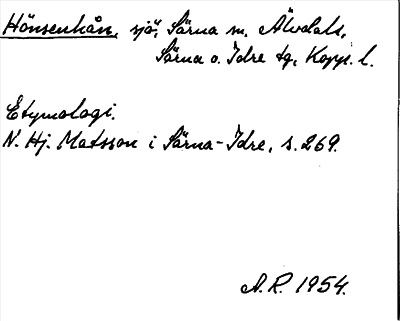 Hönsenhån, sjö, Särna m. Älvdals,
Särna o. Idre tg, Kopp. l.
Etymologi.
N. Hj. Matsson i Särna-Idre, s. 269.
A.R. 1954.